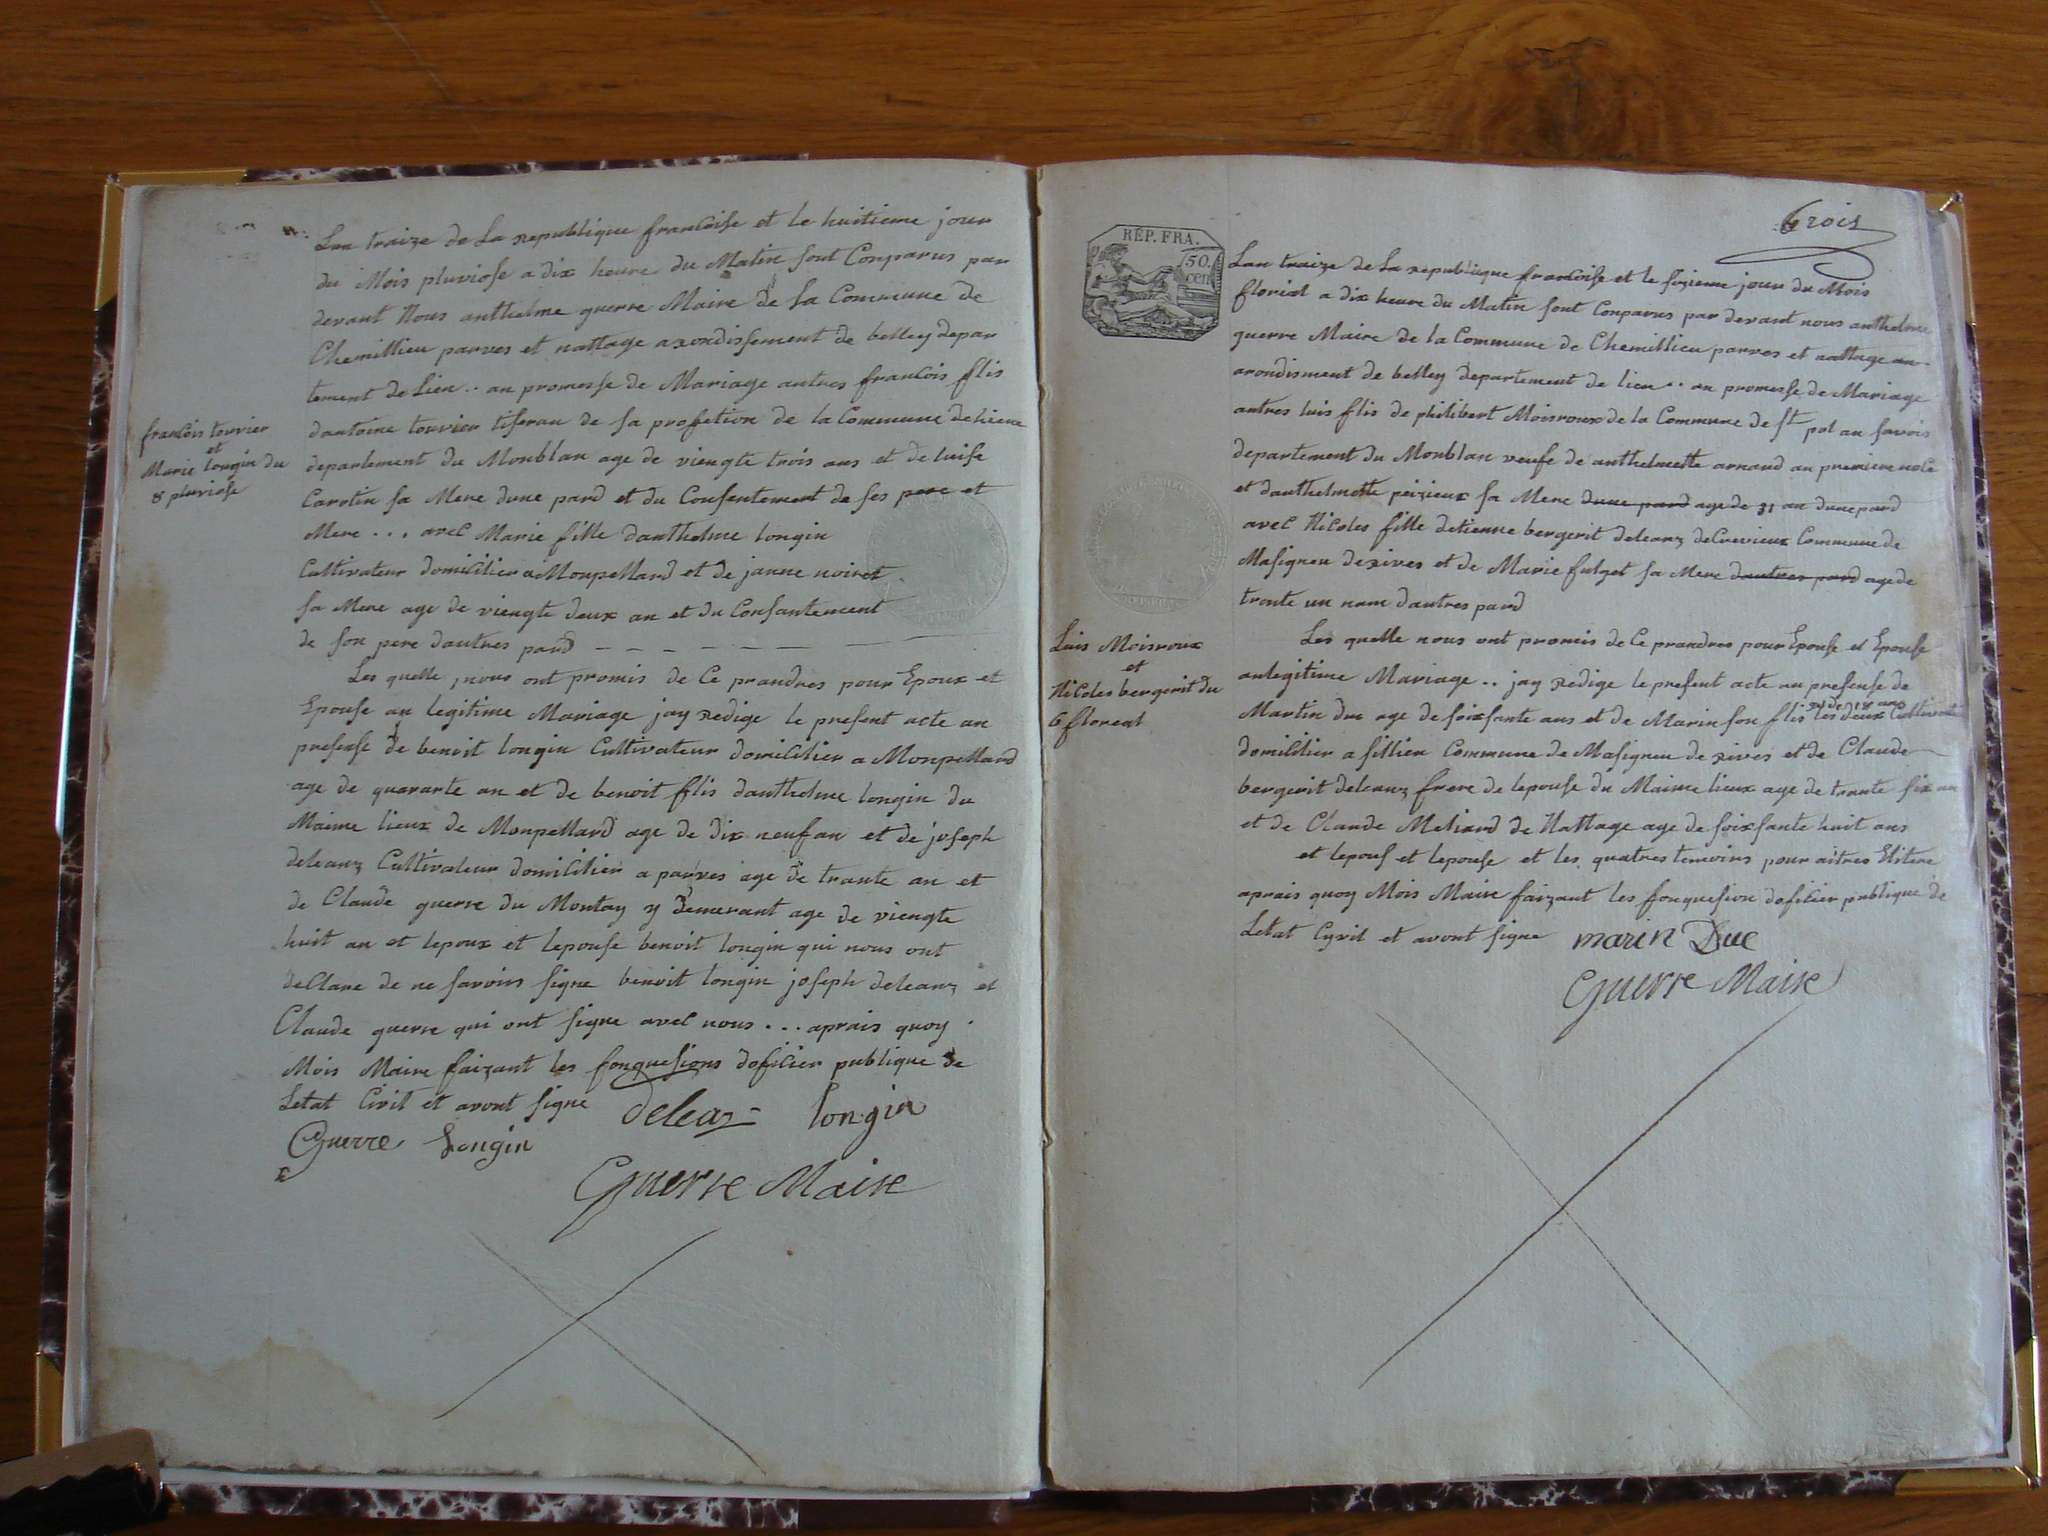 Lan traize de La republique francoise et le huitieme jour
du Mois pluviose a dix heure du Matin sont Conparus par
devant Nous anthelme guerre Maire de la Commune de
Chemillieu parves et nattage arondissement de belley depar
tement de Lien .. an promesse de Mariage antres francois flis
dantoine tourier tiseran de sa profetion de la Commune de
departement du Monblan age de viengte trois ans et de luise
Carotin sa Mere dune pard et du Consentement de ses pere et
Mere ... avec Marie fille danthelme longin
Cultivateur domicilier a Monpellard et de janne noiret
sa Mere age de viengte deux an et du Consantement
de son pere dautres pard
Les quelle nous ont promis de Ce prandres pour Epoux et
Epouse an legitime Mariage jay redige le present acte an
presense de benoit longin Cultivateur domicilier a Monpellard
age de quarante an et de benoit flis danthelme longin du
Maime lieux de Monpellard age de dix neuf an et de joseph
deleanz Cultivateur domicilier a parves age de trante an et
de Claude guerre du Montay y demerant age de viengte
huit an et lepoux et lepouse benoit longin qui nous ont
declare de ne savoirs signe benoit longin joseph deleanz et
Claude guerre qui ont signe avec nous ... aprais quoy
Mois Maire faizant les fonquesions doficier publique de
Letat Civil et avont signe deleaz longin
Guerre Longin
Guerre Maire
francois tourier
et
Marie longin du
8 pluviose
trois
RÉP. FRA.
50.
cen
Lan traize de La republique francoise et le sizieme jour du Mois
florial a dix heure du Matin sont Conparus par devant nous anthelme
guerre Maire de la Commune de Chemillieu parves et nattage an
arondisment de belley departement de lien .. an promesse de Mariage
antres luis flis de philibert Moisroux de la Commune de st pol an savois
departement du Monblan veufe de anthelmette arnaud an premiere noce
et danthelmette peizieux sa Mere dune pard age de 31 an dune pard
avec Nicoles fille detienne bergerit deleanz de Crevieux Commune de
Masigneu de rives et de Marie fulget sa Mere dautres pard age de
trante un nam dautres pard
Les quelle nous ont promis de Ce prandres pour Epouse et Epouse
anlegitime Mariage .. jay redige le present acte an presense de
Martin duc age de soixsante ans et de Marin son flis age de 18 ans les deux Cultivate
domicilier a sillien Commune de Masigneu de rives et de Claude
bergerit deleanz frere de lepouse du Maime lieux age de trante six an
et de Claude Meliard de Nattage age de soixsante huit ans
et lepous et lepouse et les quatres temoins pour aitres Elitere
aprais quoy Mois Maire faizant les fonquesion doficier publique de
Letat Cyvil et avont signe marin Duc
Guerre Maire
Luis Moisroux
et
Nicoles bergerit du
6 floreal